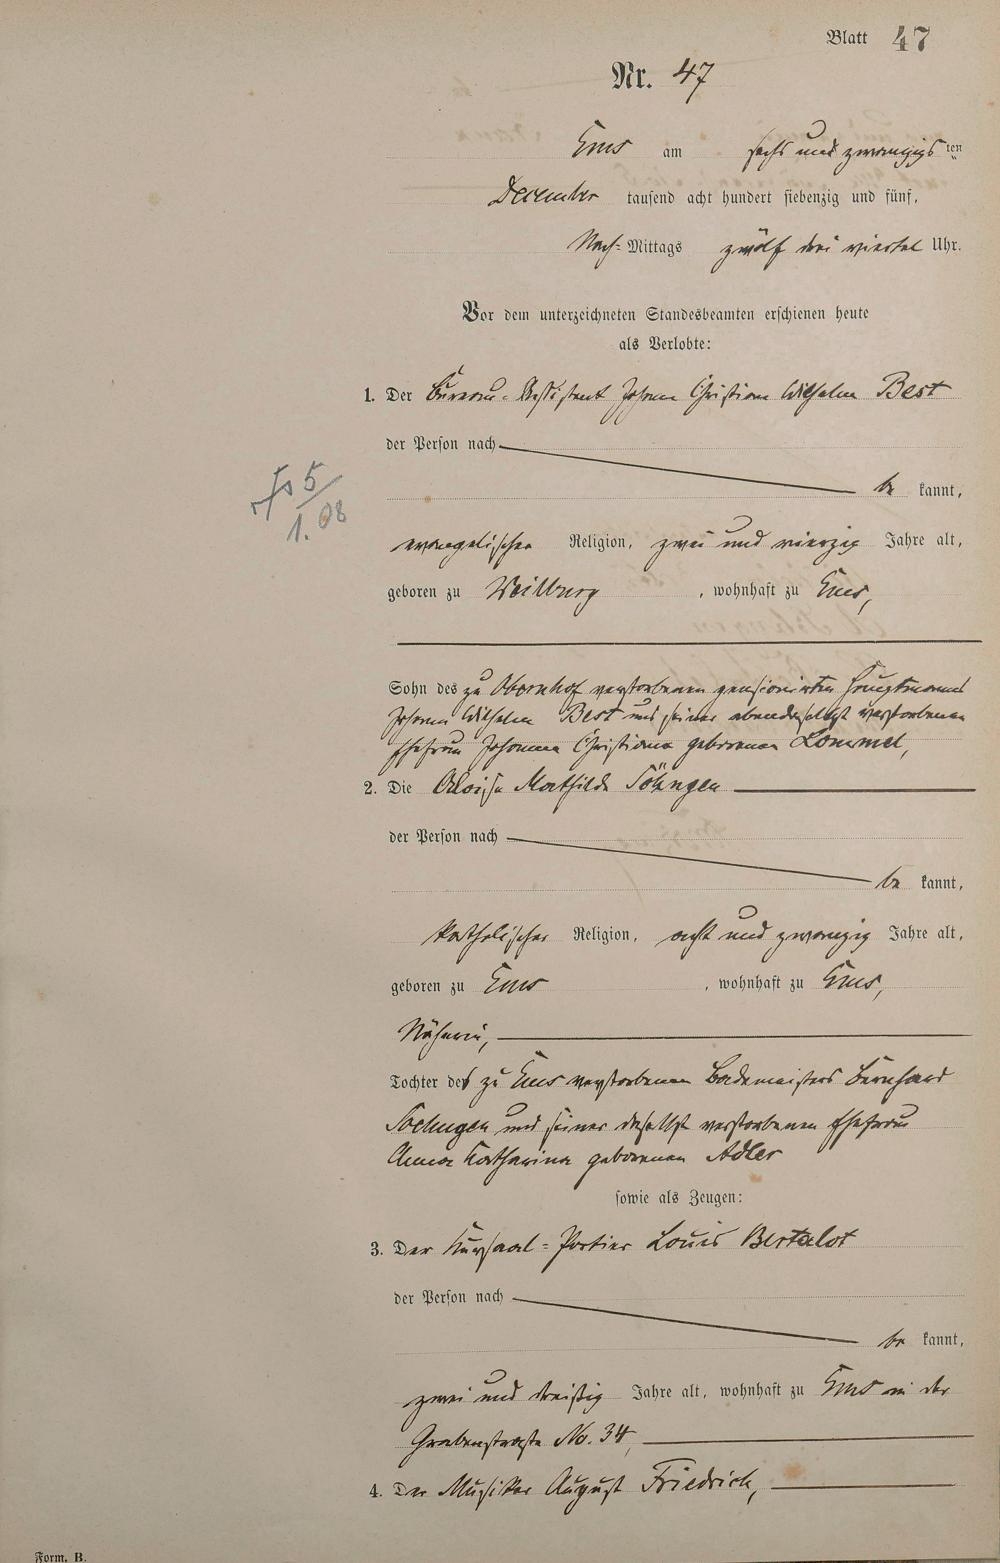 Blatt 47
Nr. 47
Ems am sechs und zwanzigs ten
December tausend acht hundert siebenzig und fünf,
Nach-Mittags zwölf drei viertel Uhr.
Vor dem unterzeichneten Standesbeamten erschienen heute
als Verlobte:
1. Der Bureau-Assistent Johann Christian Wilhelm Best
der Person nach
be kannt,
evangelischer Religion, zwei und vierzig Jahre alt,
geboren zu Weilburg, wohnhaft zu Ems,
Sohn des zu Obernhof verstorbenen pensionirten Hauptmanns
Johann Wilhelm Best und seiner ebendaselbst verstorbenen
Ehefrau Johanna Christiane geborenen Lommel,
2. Die Aloisia Mathilde Söhngen
der Person nach
be kannt,
katholischer Religion, acht und zwanzig Jahre alt,
geboren zu Ems, wohnhaft zu Ems,
Näherin,
Tochter des zu Ems verstorbenen Bademeisters Bernhard
Soehngen und seiner daselbst verstorbenen Ehefrau
Anna Katharina geborenen Adler
sowie als Zeugen:
3. Der Kursaal-Portier Louis Bertalot
der Person nach
be kannt,
zwei und dreißig Jahre alt, wohnhaft zu Ems in der
Grabenstraße No. 34,
4. Der Musiker August Friedrich,
5
1.08
Form. B.